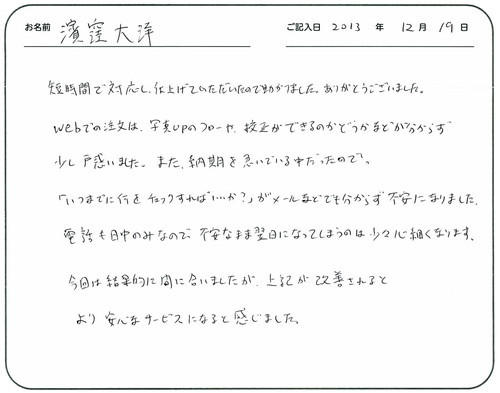 お名前 濱窪大洋 ご記入日 2013 年 12 月 19 日
短時間で対応し、仕上げていただいたので助かりました。ありがとうございました。
webでの注文は、写真upのフローや、校正ができるのかどうかなどが分からず
少し戸惑いました。また、納期を急いでいる中だったので、
「いつまでに何をチェックすればいいか?」がメールなどでも分からず不安になりました。
電話も日中のみなので、不安なまま翌日になってしまうのは少々心細くなります。
今回は結果的に間に合いましたが、上記が改善されると
より安心なサービスになると感じました。